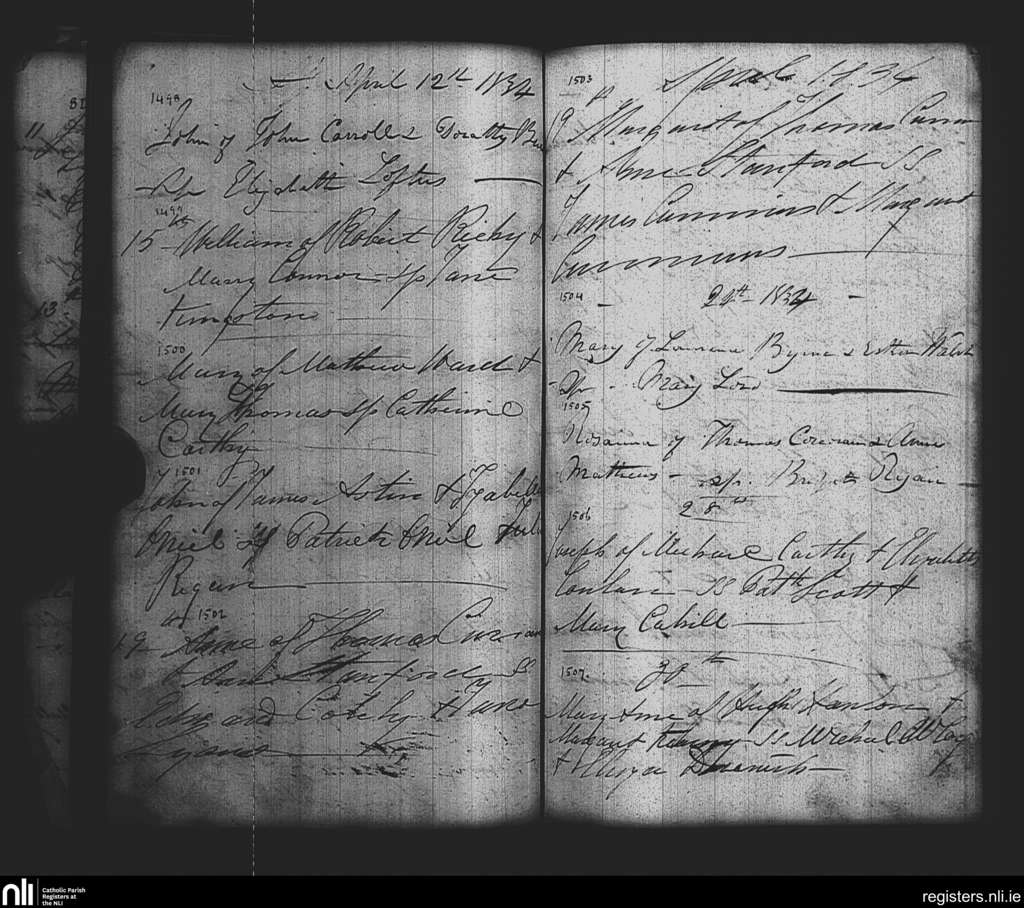 April 12th 1834
1498
John of John Carroll & Dorathy
Sp Elizabeth Loftus
1499
15th William of Robert Richy &
Mary Connor sp Jane
Kingston
1500
Mary of Mathew Ward &
Mary Thomas sp Catherine
Carthy
1501
John of James Astin & Izabella
Oniel Patrick Oniel
Regan
1502
19th Anne of Thomas
& Ann Stanford SS
Edward &
1503
April 1834
19 Margaret of Thomas
& Anne Stanford SS
James Cummins & Margaret
Cummins
1504
1834
Mary of Laurence Byrne & Esther Walsh
Sp. Mary Lord
1505
Rosanna of Thomas Corcoran & Anne
Mathews - sp. Bridget Ryan
28th
1506
Joseph of Michael Carthy & Elizabeth
Conlan - SS Patk Scott &
Mary Cahill
1507
30th
Mary Anne of Hugh Hanlon &
Margaret SS Michael
& Eliza
nli
Catholic Parish
Registers at
the NLI
registers.nli.ie